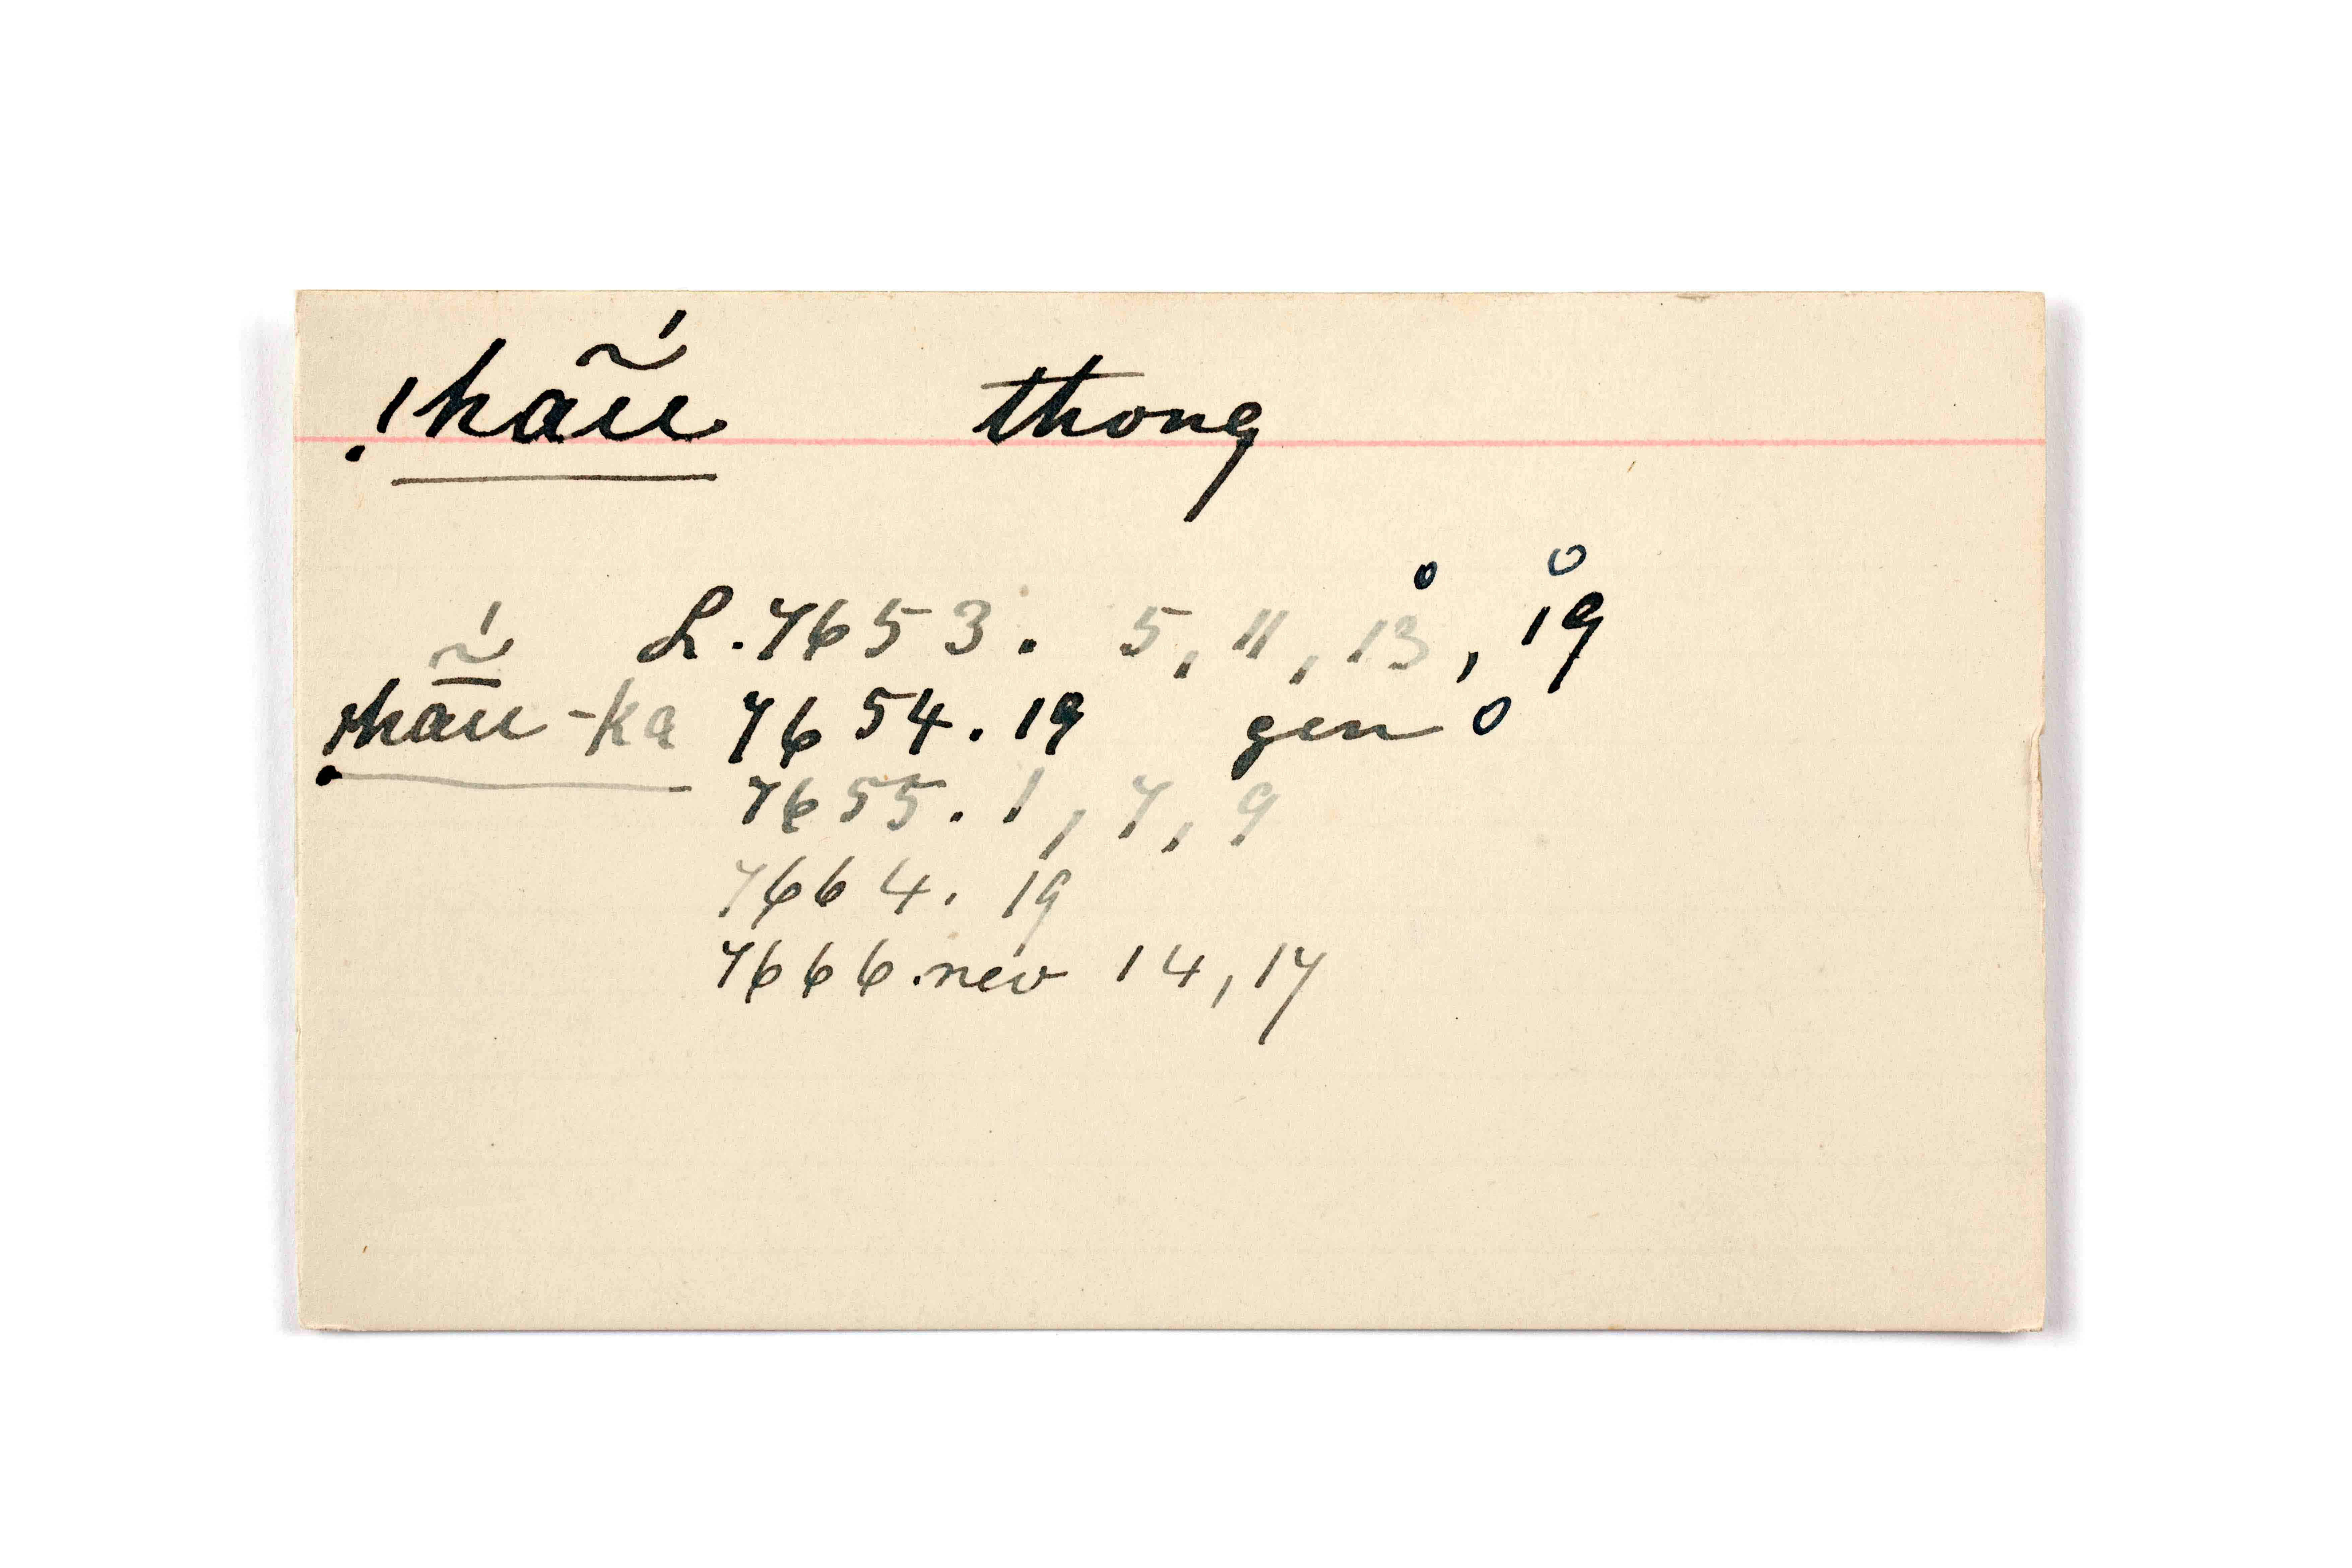 !hãṹ thong
L. 7653. 5, 11, 13°, 19°
!hãṹ-ka 7654. 19 gen o
7655. 1, 7, 9
7664. 19
7666. rev 14, 17